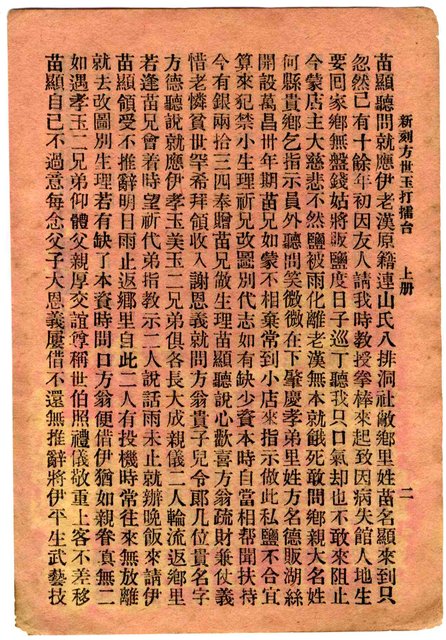 新刻方世玉打擂台 上册 二
苗顯聽問就應伊老漢原籍連山氏八排洞社敝鄉里姓苗名顯來到只
忽然已有十餘年初因友人請我時教授拳棒來起致因病失館人地生
要回家鄉無盤錢姑將販鹽度日子巡丁聽我只口氣却也不敢來阻止
今蒙店主大慈悲不然鹽被雨化離老漢無本就餓死敢問鄉親大名姓
何縣貴鄉乞指示員外聽問笑微微在下肇慶孝弟里姓方名德販湖絲
開設萬昌卅年期苗兄如蒙不相棄常到小店來指示做此私鹽不合宜
算來犯禁小生理祈兄改圖別代志如有缺少資本時自當相帮聞扶持
今有銀兩拾三四奉贈苗兄做生理苗顯聽說心歡喜方翁疏財兼仗義
惜老憐貧世罕希拜領收入謝恩義就問方翁貴子兒令郎几位貴名字
方德聽說就應伊孝玉美玉二兄弟俱各長大成親儀二人輪流返鄉里
若逢苗兄會着時望祈代弟指教示二人說話雨未止就辦晚飯來請伊
苗顯領受不推辭明日雨止返鄉里自此二人有投機時常往來無放離
就去改圖別生理若有缺了本資時間口方翁便借伊猶如親眷真無二
如遇孝玉二兄弟仰體父親厚交誼尊稱世伯照禮儀敬重上客不差移
苗顯自已不過意每念父子大恩義屢借不還無推辭將伊平生武藝技